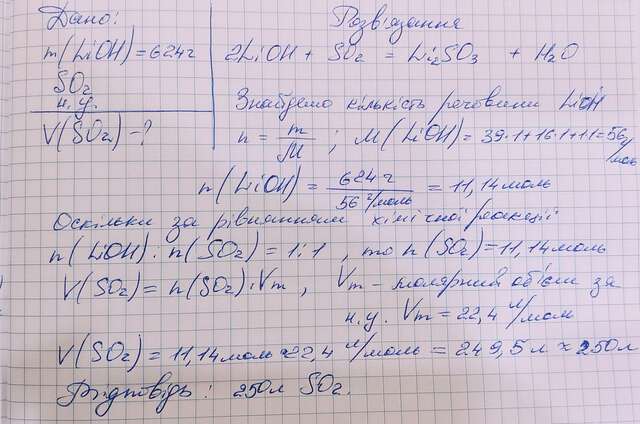 Дано:
m(LiOH)=624г
SO₂
н.у.
V(SO₂)-?
Розв'язання
2LiOH + SO₂ = Li₂SO₃ + H₂O
Знайдемо кількість речовини LiOH
n = m/M ; M(LiOH)=39·1+16·1+1·1=56г/моль
n(LiOH) = 624г / 56 г/моль = 11,14моль
Оскільки за рівнянням хімічної реакції
n(LiOH) : n(SO₂) = 1:1 , то n(SO₂)=11,14моль
V(SO₂) = n(SO₂)·Vm , Vm - молярний об'єм за
н.у. Vm = 22,4 л/моль
V(SO₂) = 11,14моль·22,4 л/моль = 249,5л ≈ 250л
Відповідь: 250л SO₂.